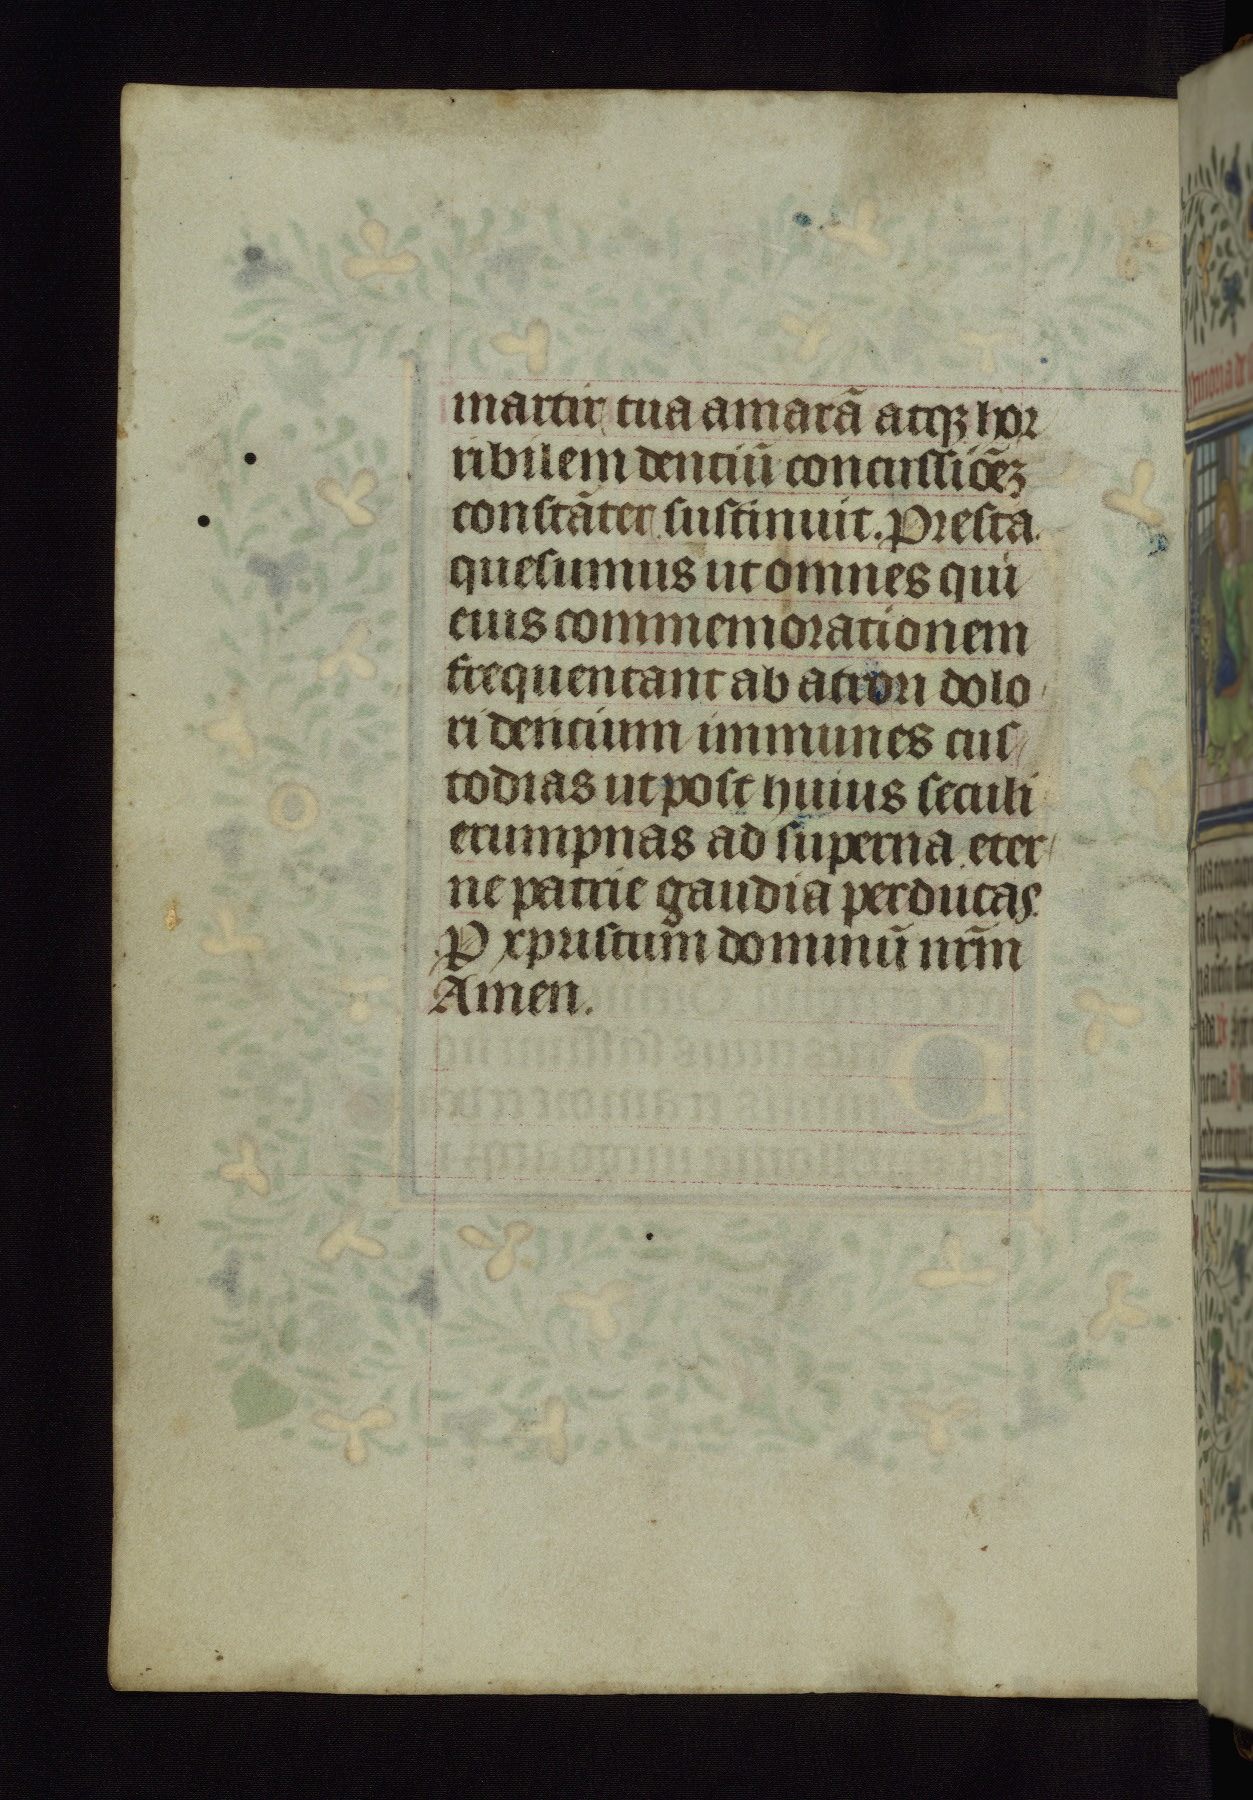 martir tua amarā atqꝫ hor
ribilem dentiū concussiōēꝫ
constāter sustinuit. Presta
quesumus ut omnes qui
eius commemorationem
frequentant ab atrori dolo
ri dencium immunes cus
todias ut post huius seculi
erumpnas ad superna eter
ne patrie gaudia perducas.
P xpristum dominū nrm̄
Amen.